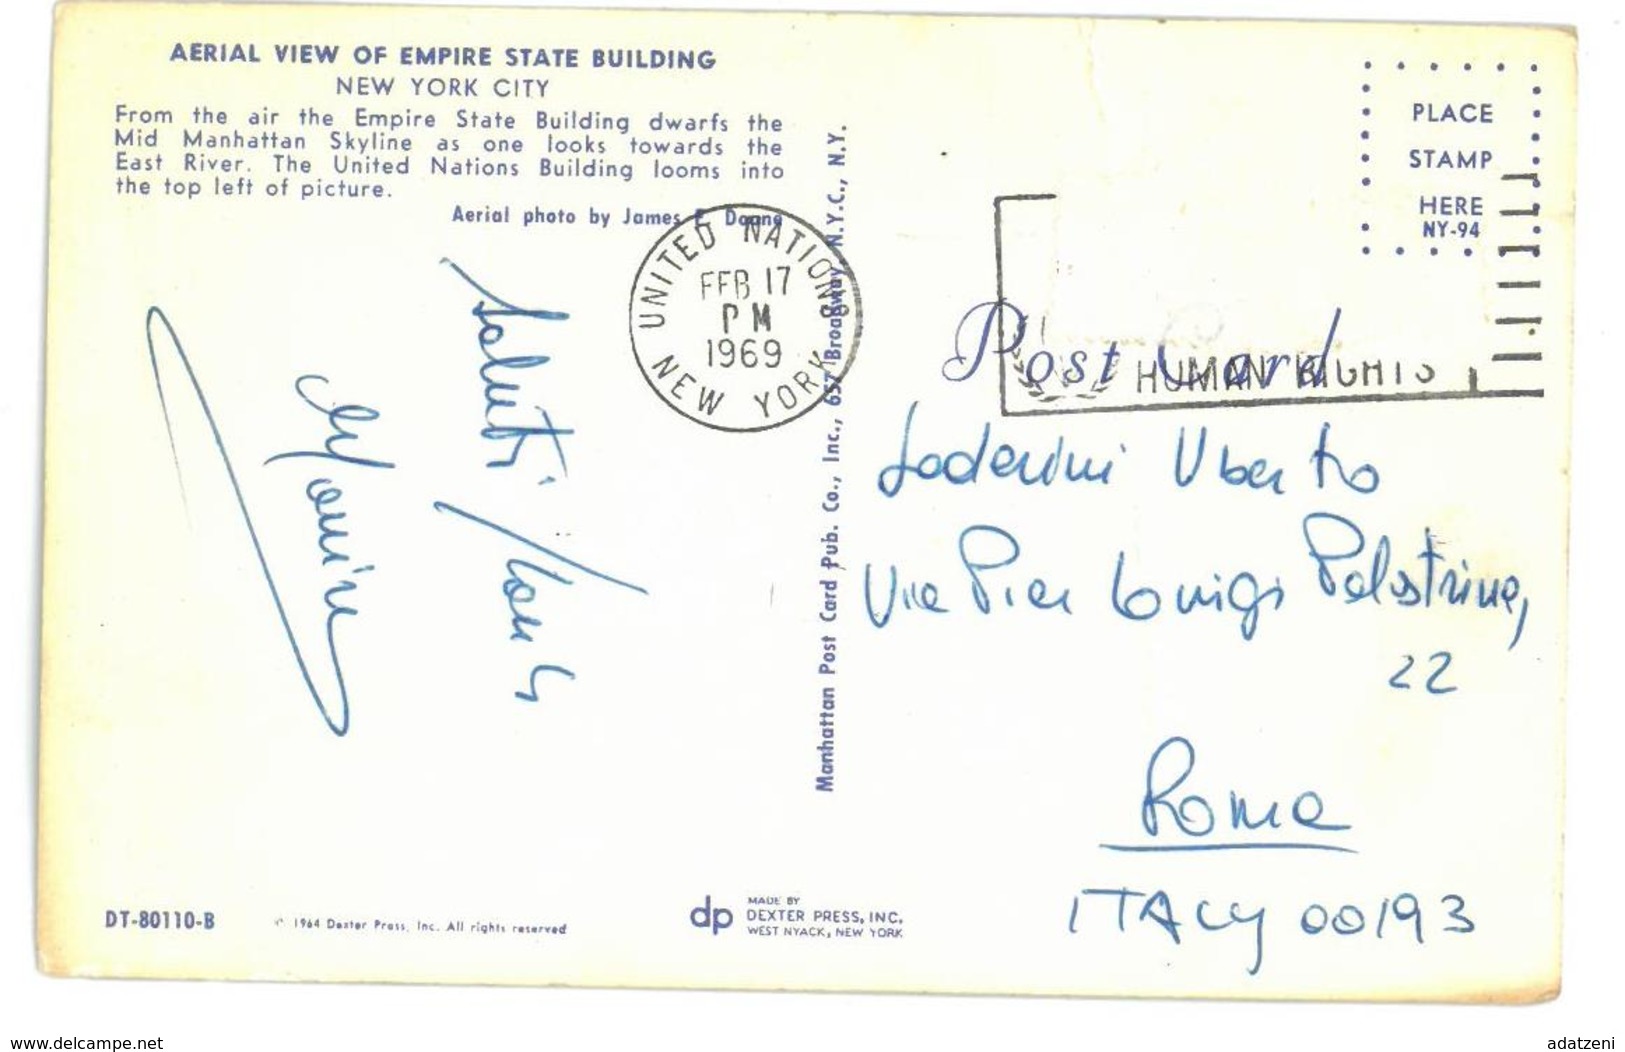 AERIAL VIEW OF EMPIRE STATE BUILDING
NEW YORK CITY
From the air the Empire State Building dwarfs the
Mid Manhattan Skyline as one looks towards the
East River. The United Nations Building looms into
the top left of picture.
Aerial photo by James E. Doane
Saluti
UNITED NATIONS
FEB 17
PM
1969
NEW YORK
Manhattan Post Card Pub. Co., Inc., 657 Broadway, N.Y.C., N.Y.
PLACE
STAMP
HERE
NY-94
Post Card
HUMAN RIGHTS
Uberto
Via Pier Luigi Palestrina,
22
Roma
ITALY 00193
DT-80110-B
© 1964 Dexter Press, Inc. All rights reserved
dp
MADE BY
DEXTER PRESS, INC.
WEST NYACK, NEW YORK
www.delcampe.net
adatzeni